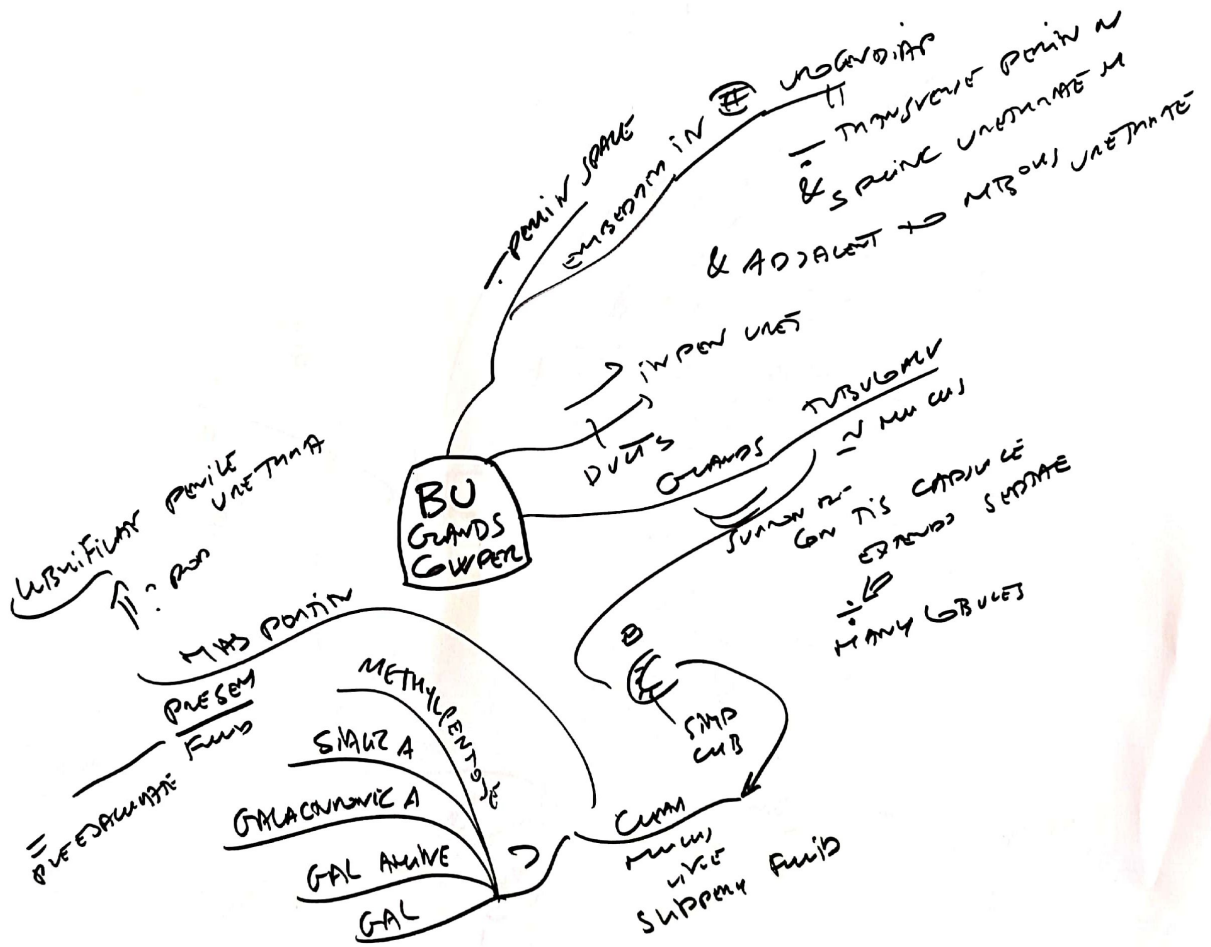 BU
GLANDS
COWPER
PERIN SPACE
EMBEDDED IN
UROGENDIAP
TRANSVERSE PERIN M
& SPHINC URETHRAE M
& ADJACENT TO MBOUS URETHRAE
IN PEN URET
DUCTS
GLANDS
TUBULOALV
MUCUS
CON TIS CAPSULE
EXTENDS SEPTAE
MANY LOBULES
SIMP
CUB
CLEAR
MUCUS
LIKE
SLIPPERY FLUID
METHYLPENTOSE
SIALIC A
GALACTURONIC A
GAL AMINE
GAL
MAJ PORTIN
PRESEM
FLUID
= PREEJACULATE
LUBRIFICAT PENILE
URETHRA